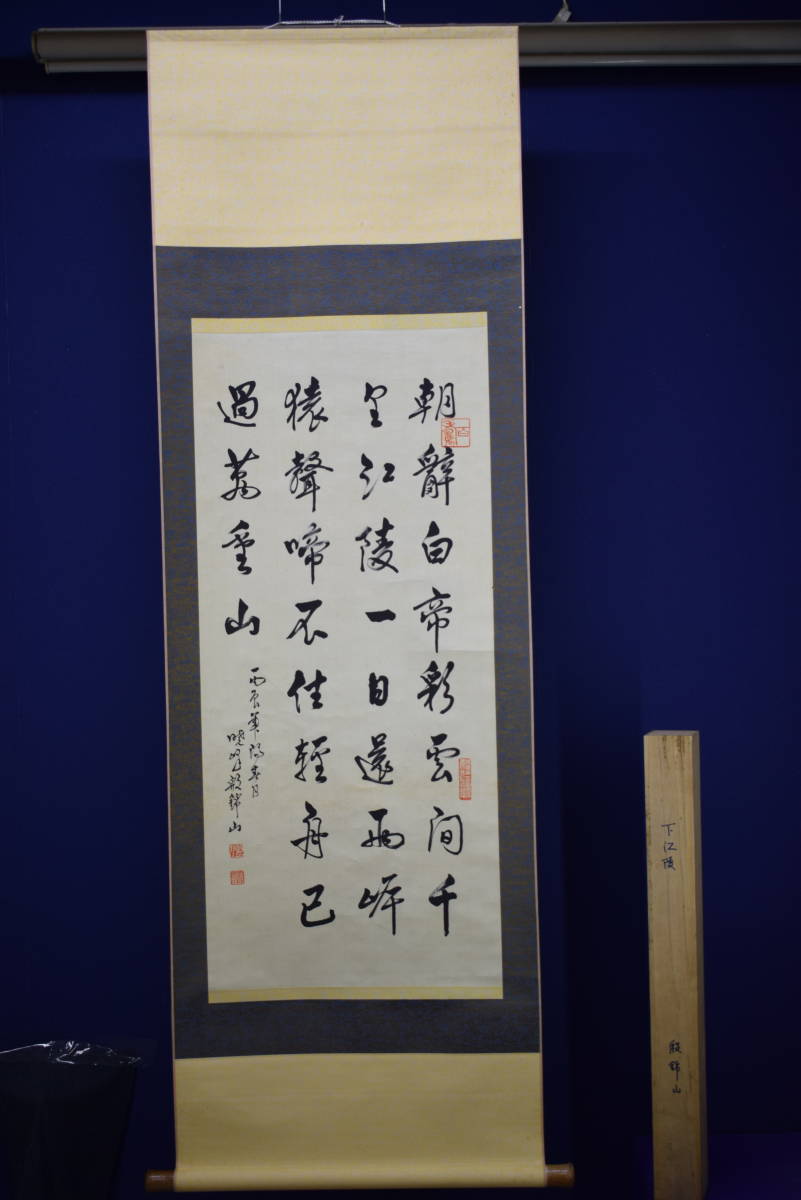 朝辭白帝彩雲間千
里江陵一日還兩岸
猿聲啼不住輕舟已
過萬重山
丙辰年陽春月
段錦山
下江陵
段錦山